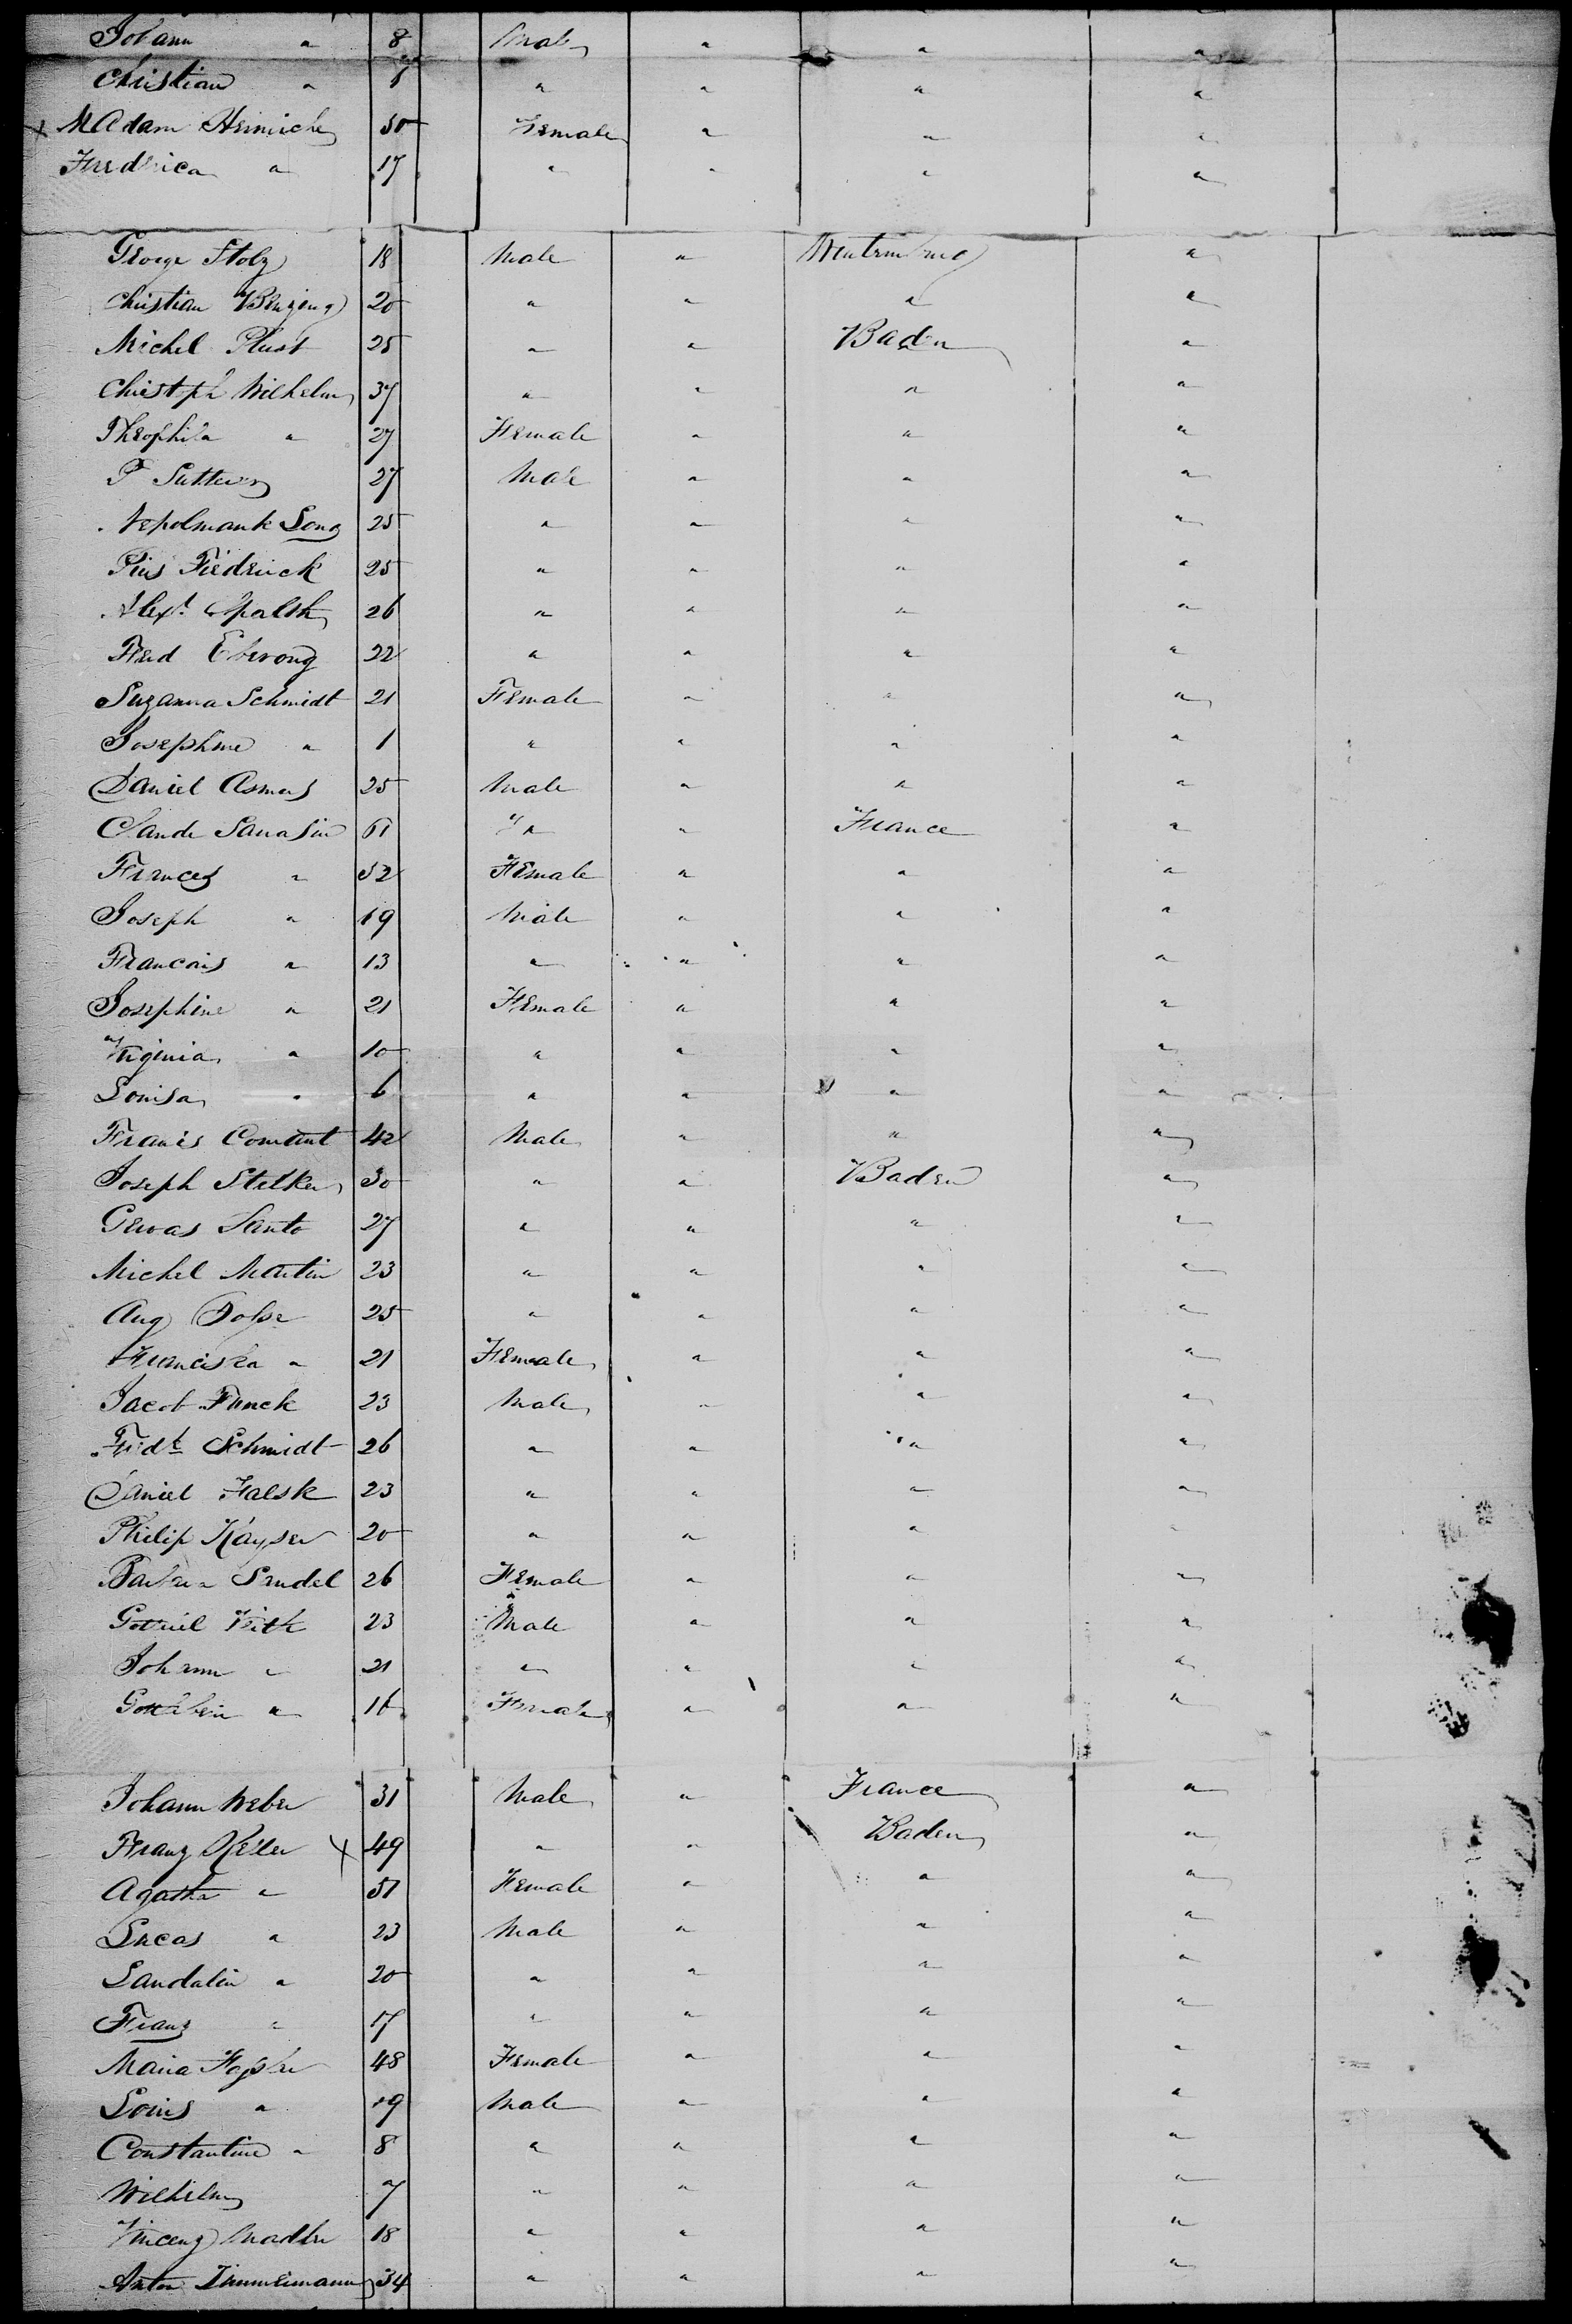 Johann " 8 Male " " "
Christian " " " " "
x M Adam Heinrich 50 Female " " "
Fredrica " 17 " " " "
George Stolz 18 Male " "
Christian 20 " " " "
Michel Plust 25 " " Baden "
Christph Wilhelm 37 " " " "
Theophila " 27 Female " " "
P Sutter 27 Male " " "
25 " " " "
Pius Fiedrick 25 " " " "
Alexr. Spalth 26 " " " "
Fred 22 " " " "
Suzanna Schmidt 21 Female " " "
Josephine " 1 " " " "
Daniel Asmus 25 Male " " "
Claude Sarrasin 61 " " France "
Frances " 52 Female " " "
Joseph " 19 Male " " "
Francois " 13 " " " "
Josephine " 21 Female " " "
Virginia " 10 " " " "
Louisa " 6 " " " "
Francis 42 Male " " "
Joseph 30 " " Baden "
Gervas Santo 27 " " " "
Michel Martin 23 " " " "
Aug 25 " " " "
Franciska " 21 Female " " "
Jacob Funck 23 Male " " "
Fredk Schmidt 26 " " " "
Daniel Falsk 23 " " " "
Philip Kayser 20 " " " "
Barbara Sandel 26 Female " " "
23 Male " " "
Johann " 21 " " " "
" 16 Female " " "
Johann Weber 31 Male " France "
Franz Keller x 49 " " Baden "
Agatha " 51 Female " " "
Lucas " 23 Male " " "
Landalin " 20 " " " "
Franz " 17 " " " "
Maria 48 Female " " "
Louis " 19 Male " " "
Constantine " 8 " " " "
Wilhelm 7 " " " "
Vincenz Madler 18 " " " "
Anton Zimmermann 34 " " " "